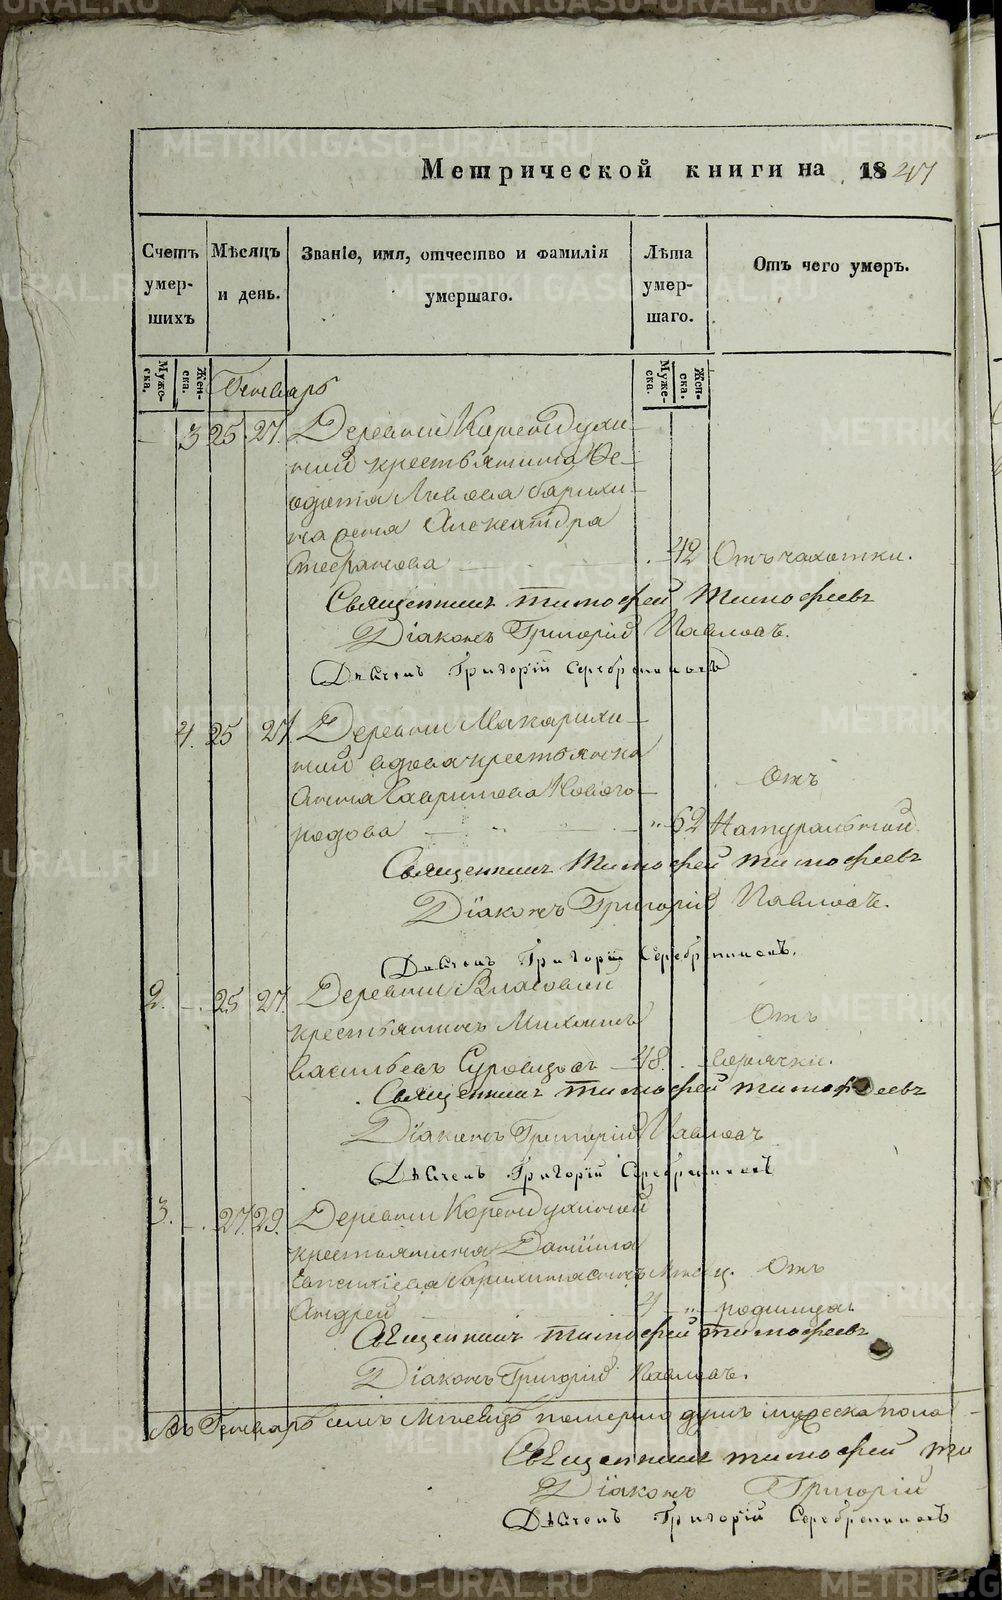 METRIKI.GASO-URAL.RU
Метрической книги на 1847
Счетъ умер-шихъ
Мѣсяцъ и день.
Званіе, имя, отчество и фамилія умершаго.
Лѣта умер-шаго.
Отъ чего умеръ.
Мужс-ка.
Жен-ска.
Генварь
Муже-ска.
Жен-ска.
3 25 27. Деревни
крестьянина Ѳе-
жена Александра
Стефанова 42 Отъ чахотки.
Священникъ Тимофей Тимофеевъ
Діаконъ Григорій Павловъ.
Дьячекъ Григорій Серебренниковъ
4. 25 27. Деревни Макарихи-
ной вдова крестьянка
Анна Гаврилова Нового- Отъ
родова 62 Натуральной.
Священникъ Тимофей Тимофеевъ
Діаконъ Григорій Павловъ.
Дьячекъ Григорій Серебренниковъ.
2. 25 27. Деревни
крестьянинъ Отъ
Васильевъ 48. горячки.
Священникъ Тимофей Тимофеевъ
Діаконъ Григорій Павловъ
Дьячекъ Григорій Серебренниковъ
3. 27 29. Деревни
крестьянина Даніила
сынъ Отъ
Андрей родимца.
Священникъ Тимофей Тимофеевъ
Діаконъ Григорій Павловъ.
Въ Генварѣ семъ мѣсяцѣ померло душъ мужеска пола
Священникъ Тимофей Ти
Діаконъ Григорій
Дьячекъ Григорій Серебренниковъ